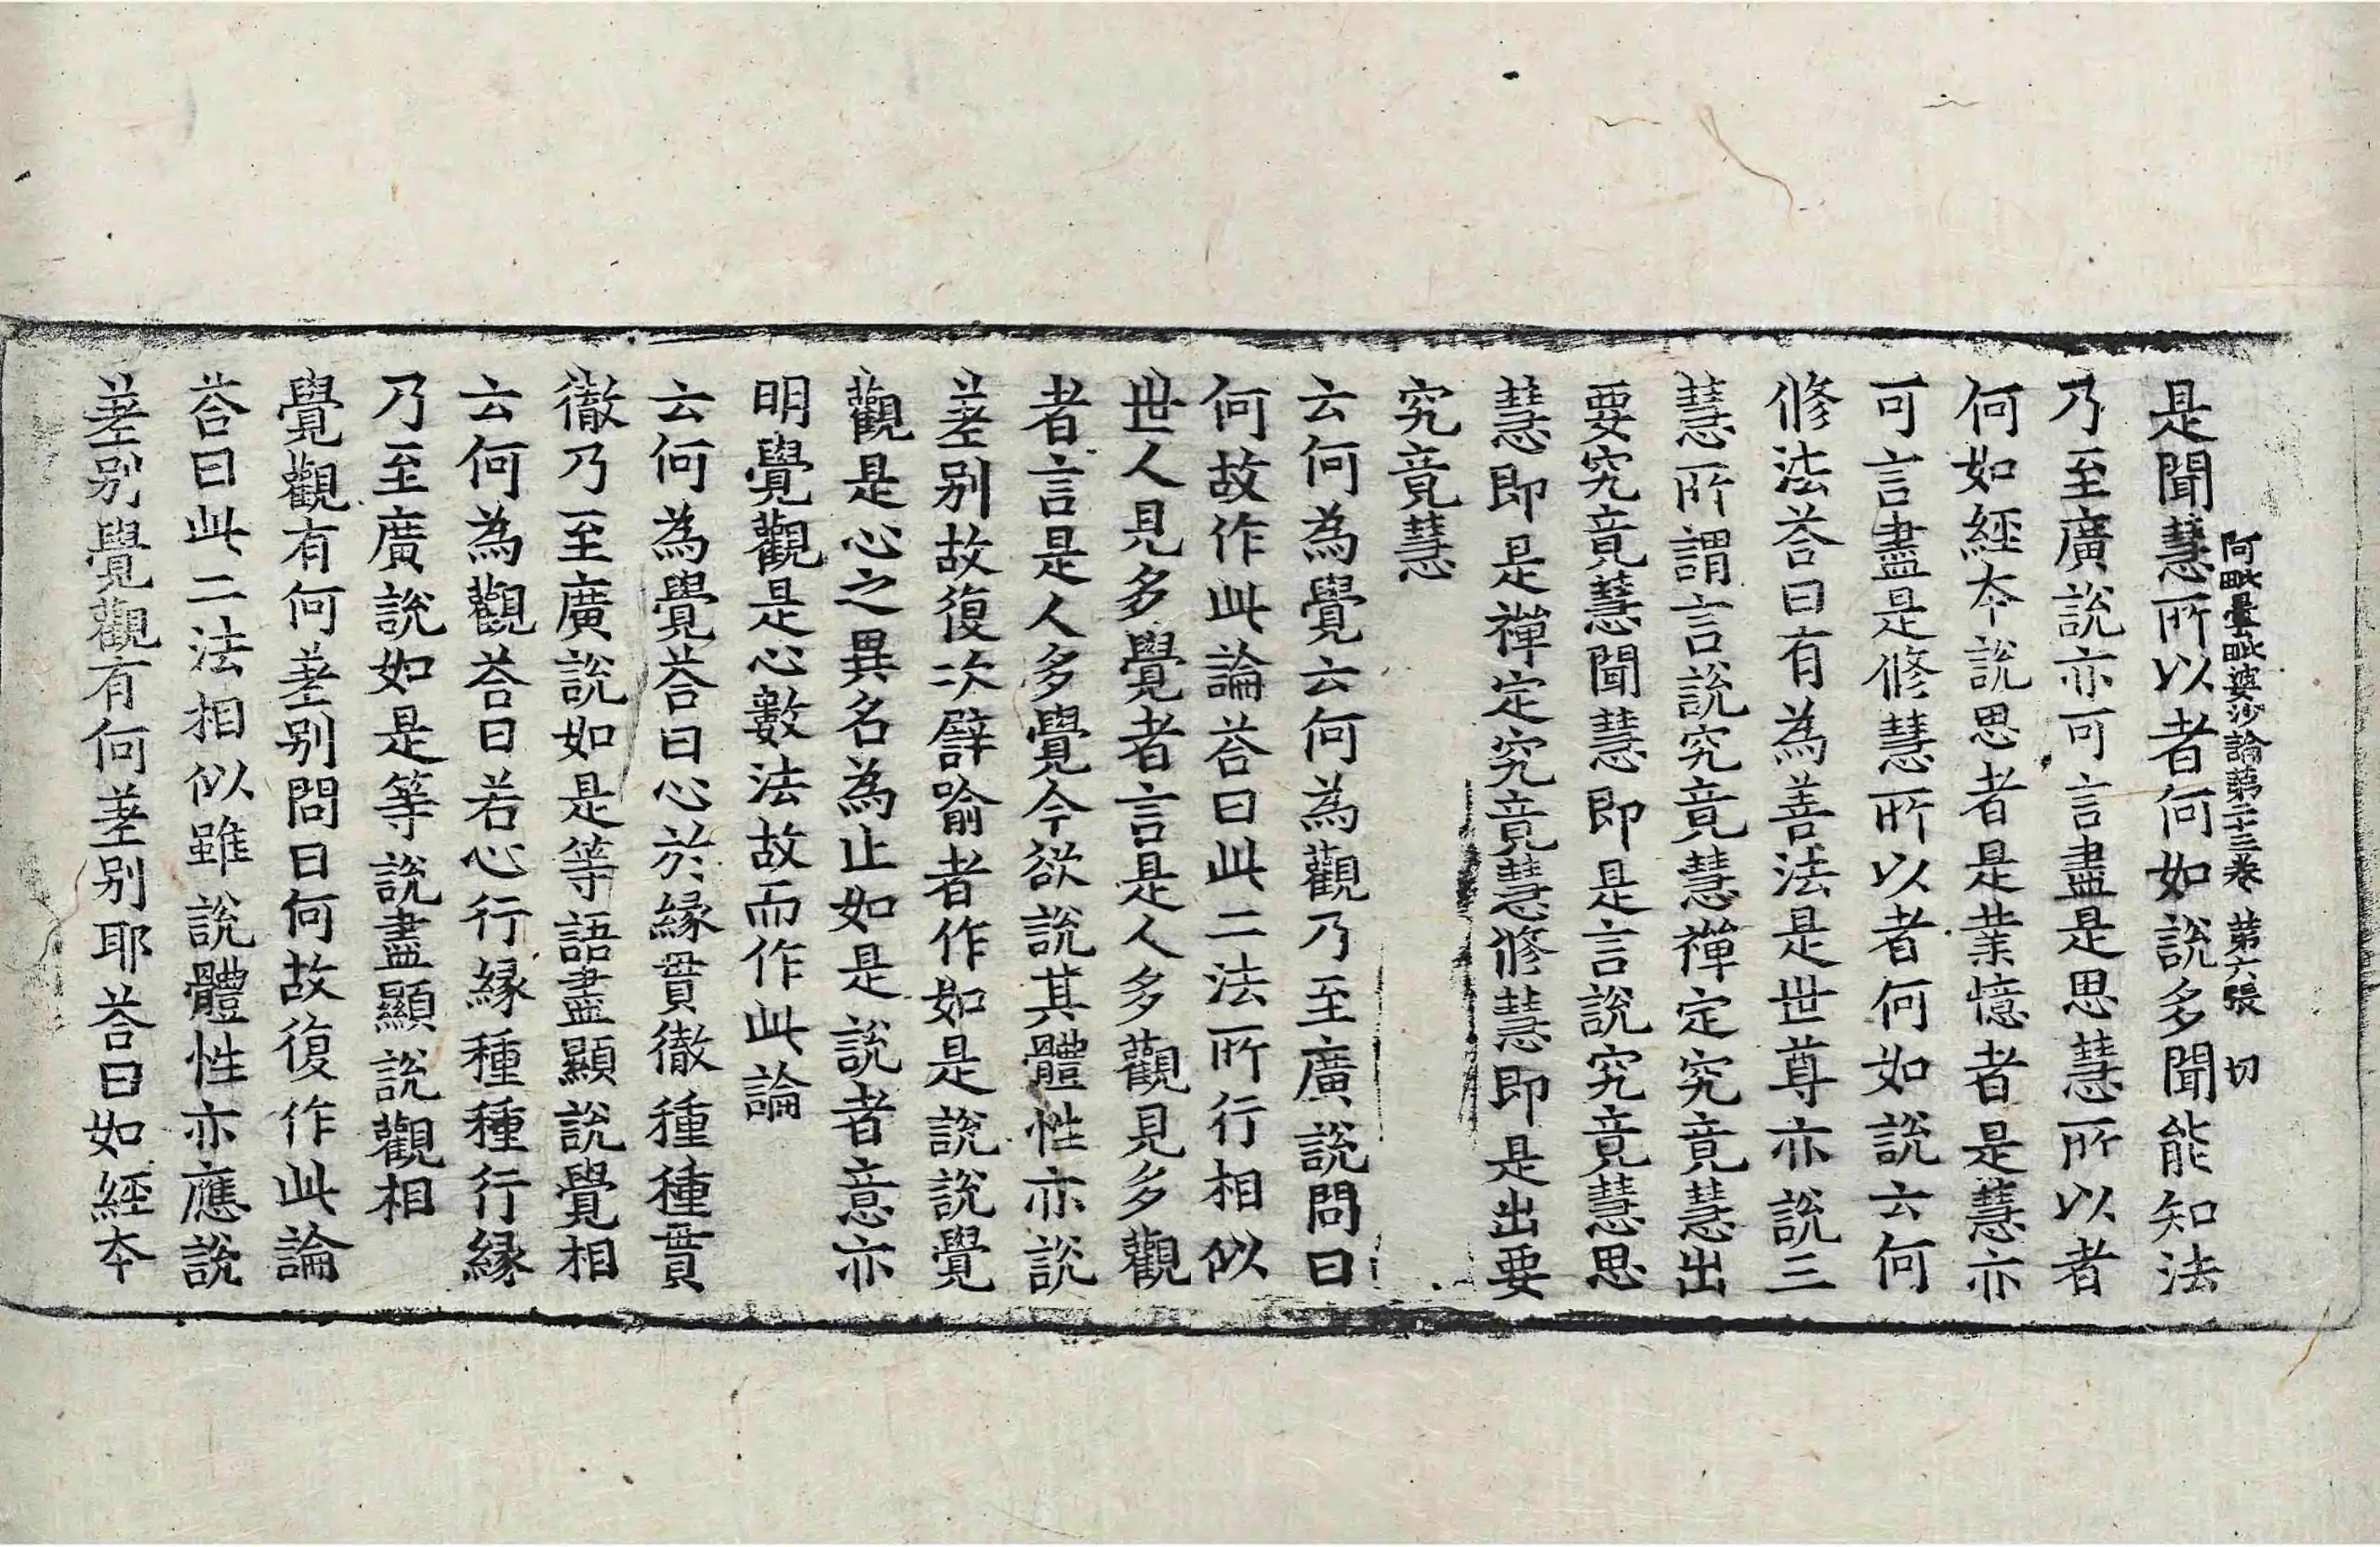 阿毗曇毗婆沙論第二十三卷 第六張 切
是聞慧所以者何如說多聞能知法
乃至廣說亦可言盡是思慧所以者
何如經本說思者是業憶者是慧亦
可言盡是修慧所以者何如說云何
修法荅曰有為善法是世尊亦說三
慧所謂言說究竟慧禪定究竟慧出
要究竟慧聞慧即是言說究竟慧思
慧即是禪定究竟慧修慧即是出要
究竟慧
云何為覺云何為觀乃至廣說問曰
何故作此論荅曰此二法所行相似
世人見多覺者言是人多觀見多觀
者言是人多覺今欲說其體性亦說
差別故復次譬喻者作如是說說覺
觀是心之異名為止如是說者意亦
明覺觀是心數法故而作此論
云何為覺荅曰心於緣貫徹種種貫
徹乃至廣說如是等語盡顯說覺相
云何為觀荅曰若心行緣種種行緣
乃至廣說如是等說盡顯說觀相
覺觀有何差別問曰何故復作此論
荅曰此二法相似雖說體性亦應說
差別覺觀有何差別耶荅曰如經本